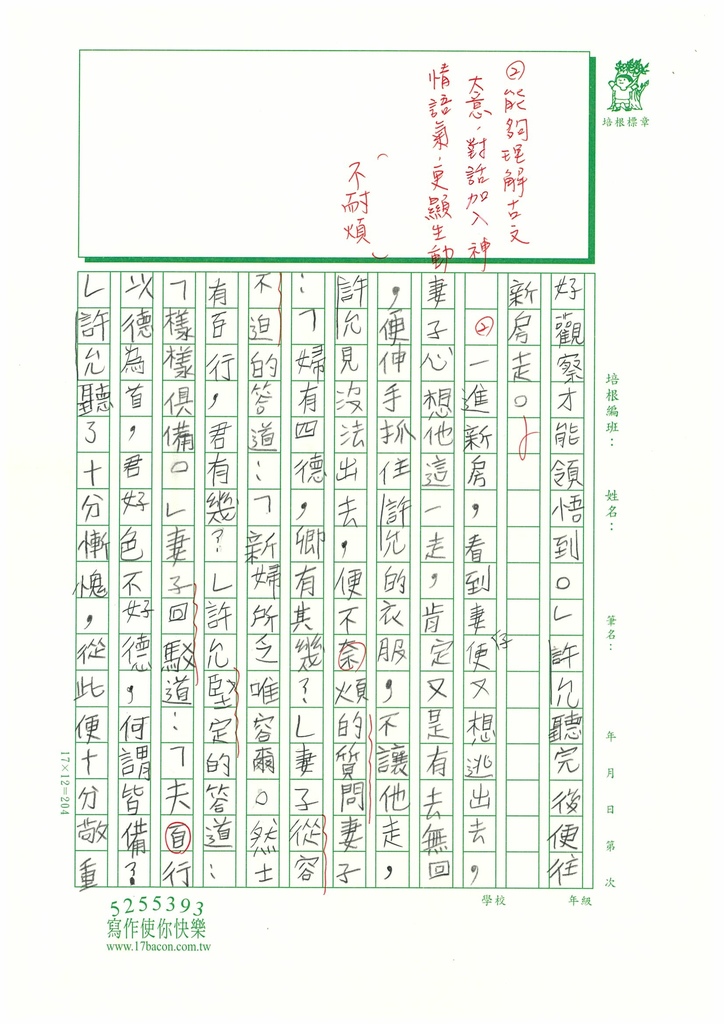 ②能夠理解古文
大意，對話加入神
情語氣，更顯生動
（不耐煩）
培根標章
培根編班：
姓名：
筆名：
年月日第次
好觀察才能領悟到。」許允聽完後便往
新房走。
②一進新房，看到妻便又想逃出去，
子
妻子心想他這一走，肯定又是有去無回
，便伸手抓住許允的衣服，不讓他走，
許允見沒法出去，便不奈煩的質問妻子
：「婦有四德，卿有其幾？」妻子從容
不迫的答道：「新婦所乏唯容爾。然士
有百行，君有幾？」許允堅定的答道：
「樣樣俱備。」妻子回駁道：「夫百行
以德為首，君好色不好德，何謂皆備？
」許允聽了十分慚愧，從此便十分敬重
17×12=204
學校
年級
5255393
寫作使你快樂
www.17bacon.com.tw